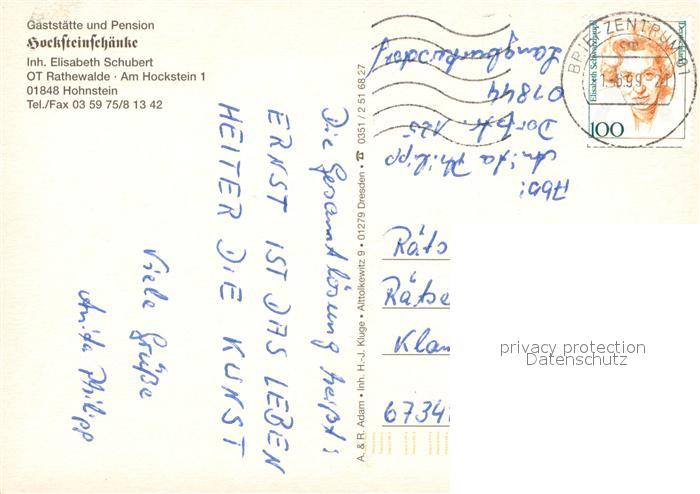 Gaststätte und Pension
Hocksteinschänke
Inh. Elisabeth Schubert
OT Rathewalde · Am Hockstein 1
01848 Hohnstein
Tel./Fax 03 59 75/8 13 42
Die Gesamtlösung heißt:
ERNST IST DAS LEBEN
HEITER DIE KUNST
Viele Grüße
Anita Philipp
A. & R. Adam • Inh. H.-J. Kluge • Alttolkewitz 9 • 01279 Dresden • ☎ 0351 / 2 51 68 27
Abs:
Anita Philipp
Dorfstr. 125
01844
Langburkersdorf
BRIEFZENTRUM 01
Deutschland
Elisabeth Schwarzhaupt
100
Räts
Rätse
Klau
6734
privacy protection
Datenschutz